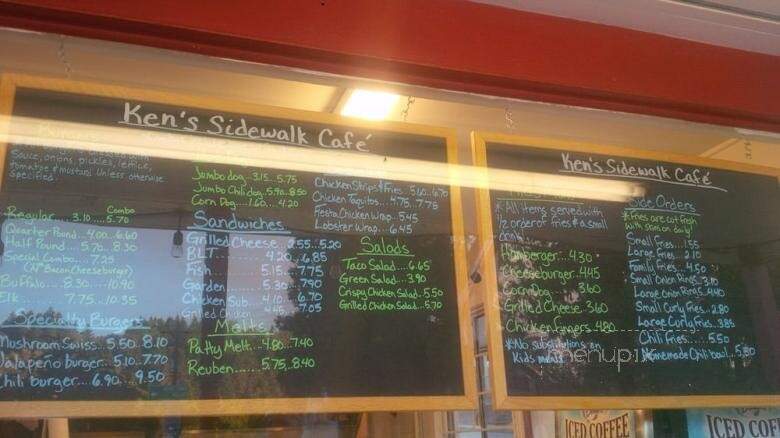 Ken's Sidewalk Café
Sauce, onions, pickles, lettuce,
tomatoes & mustard Unless otherwise
specified
Combo
Regular.... 3.10... 5.70
Quarter Pound... 4.00... 6.60
Half Pound... 5.70... 8.30
Special Combo... 7.25
(1/4# Bacon Cheeseburger)
Buffalo... 8.30... 10.90
Elk... 7.75... 10.35
Specialty Burgers
Mushroom Swiss... 5.50... 8.10
Jalapeño burger... 5.10... 7.70
Chili burger... 6.90... 9.50
Jumbo dog... 3.15... 5.75
Jumbo Chili dog... 5.90... 8.50
Corn Dog... 1.60... 4.20
Sandwiches
Grilled Cheese... 2.55... 5.20
BLT... 4.20... 6.85
Fish... 5.15... 7.75
Garden... 5.30... 7.90
Chicken Sub... 4.10... 6.70
Grilled Chicken... 4.45... 7.05
Melts
Patty Melt... 4.80... 7.40
Reuben... 5.75... 8.40
Chicken Strips & Fries
Chicken Taquitos... 4.75... 7.75
Fiesta Chicken Wrap... 5.45
Lobster Wrap... 6.45
Salads
Taco Salad... 6.65
Green Salad... 3.90
Crispy Chicken Salad... 5.50
Grilled Chicken Salad... 5.70
Ken's Sidewalk Café
*All items served with
1/2 order of fries & a small
drink
Hamburger... 4.30
Cheeseburger... 4.45
Corn Dog... 3.60
Grilled Cheese... 3.60
Chicken Fingers... 4.80
*No substitutions on
Kids meals
Side Orders
*Fries are cut fresh
with skin on daily
Small Fries... 1.55
Large Fries... 2.10
Family Fries... 4.50
Small Onion Rings... 3.10
Large Onion Rings... 4.40
Small Curly Fries... 2.80
Large Curly Fries... 3.85
Chili Fries... 5.50
Homemade Chili bowl... 5.80
menupix
ICED COFFEE
ICED COF